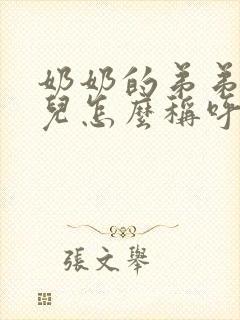 奶奶的弟弟
兒怎麼稱呼
張文舉